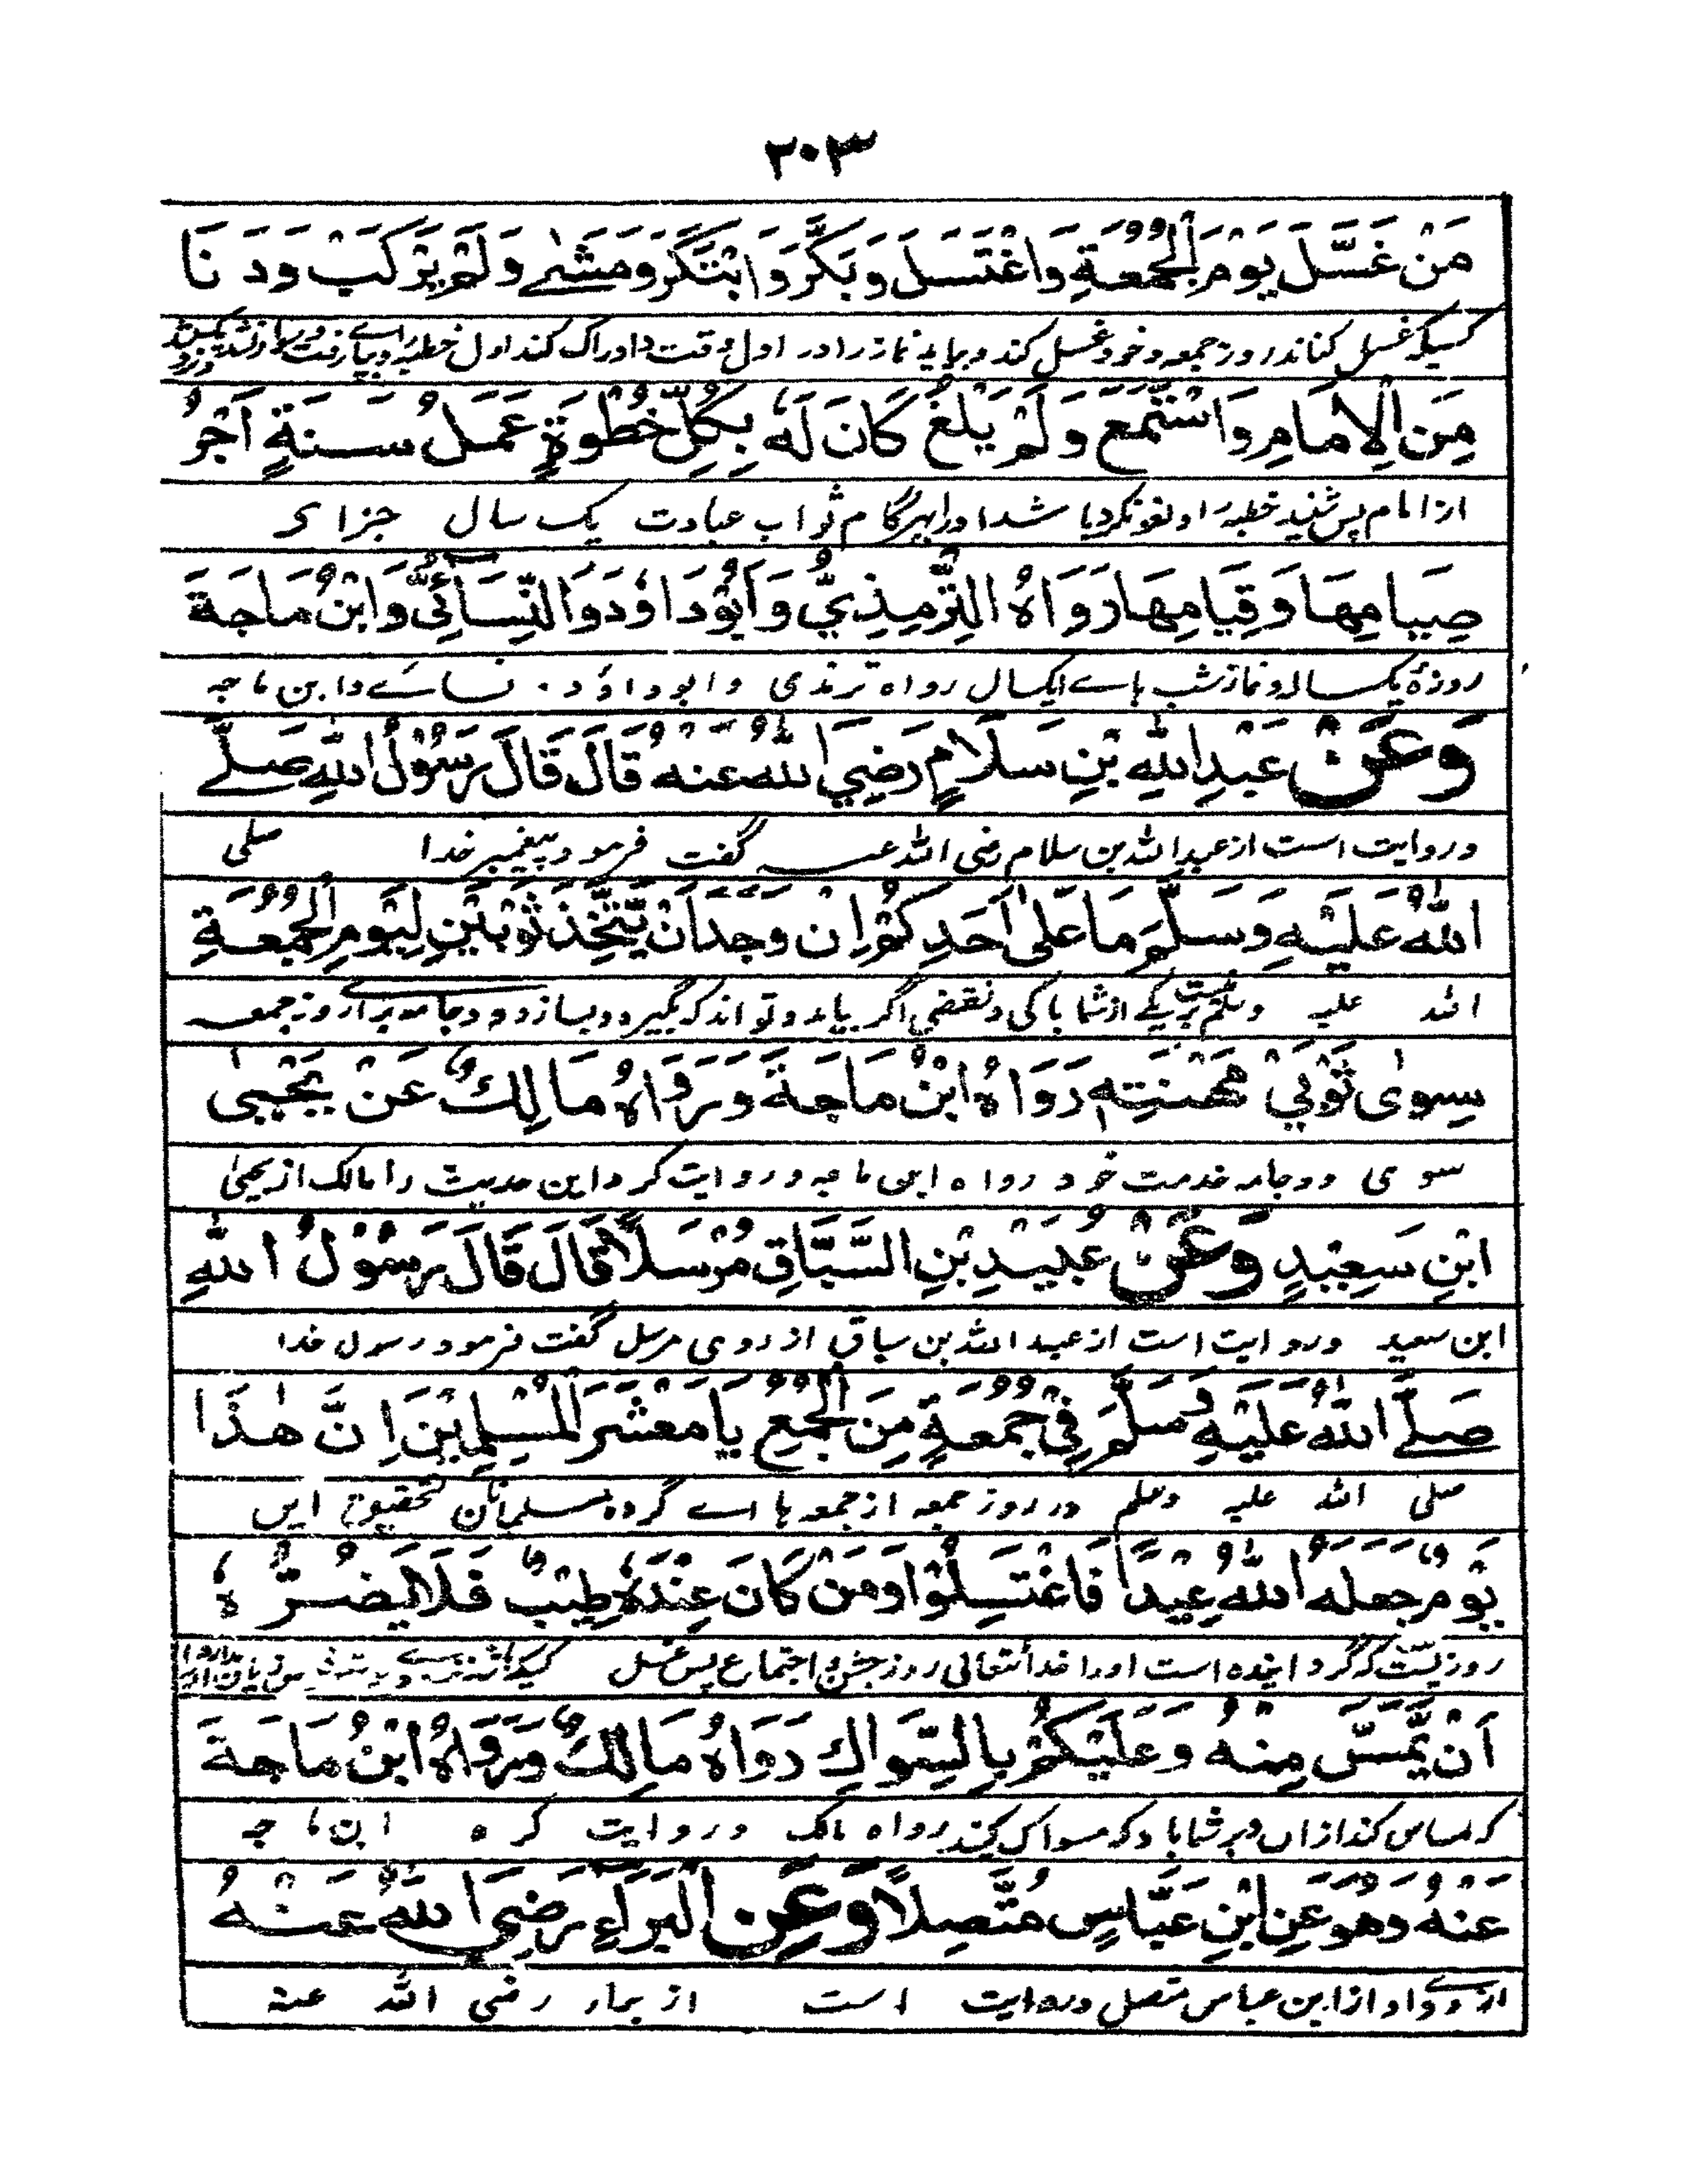 ٣٠٣
مَنْ غَسَّلَ يَوْمَ الْجُمُعَةِ وَاغْتَسَلَ وَبَكَّرَ وَابْتَكَرَ وَمَشٰى وَلَمْ يَرْكَبْ وَدَنَا
کسیکه غسل کناند روز جمعه و خود غسل کند و بیاید نماز را در اول وقت و ادراک کند اول خطبه
مِنَ الْاِمَامِ وَاسْتَمَعَ وَلَمْ يَلْغُ كَانَ لَهٗ بِكُلِّ خُطْوَةٍ عَمَلُ سَنَةٍ اَجْرُ
از امام پس شنید خطبه را و لغو نکرد باشد او را بهر گام ثواب عبادت یک سال جزای
صِيَامِهَا وَقِيَامِهَا رَوَاهُ التِّرْمِذِيُّ وَاَبُوْدَاوٗدَ وَالنَّسَآئِيُّ وَابْنُ مَاجَةَ
روزهٔ یکسال و نماز شب هاے یکسال رواه ترمذی و ابو داؤد . نسائے و ابن ماجه
وَعَنْ عَبْدِ اللّٰهِ بْنِ سَلَامٍ رَضِيَ اللّٰهُ عَنْهُ قَالَ قَالَ رَسُوْلُ اللّٰهِ صَلَّے
و روایت است از عبد الله بن سلام رضی الله عنه گفت فرمود پیغمبر خدا صلی
اللّٰهُ عَلَيْهِ وَسَلَّمَ مَا عَلٰى اَحَدِكُمْ اِنْ وَجَدَ اَنْ يَّتَّخِذَ ثَوْبَيْنِ لِيَوْمِ الْجُمُعَةِ
الله علیه وسلم نیست بر یکے از شما باکی و نقصی اگر بیابد و تواند که بگیرد و بسازد دو جامه براے روز جمعه
سِوٰى ثَوْبَيْ مِهْنَتِهٖ رَوَاهُ ابْنُ مَاجَةَ وَرَوَاهُ مَالِكٌ عَنْ يَحْيٰى
سوی دو جامه خدمت خود رواه ابن ماجه و روایت کرد این حدیث را مالک از یحیٰی
ابْنِ سَعِيْدٍ وَعَنْ عُبَيْدِ بْنِ السَّبَّاقِ مُرْسَلًا قَالَ قَالَ رَسُوْلُ اللّٰهِ
ابن سعید و روایت است از عبید الله بن سباق از روی مرسل گفت فرمود رسول خدا
صَلَّے اللّٰهُ عَلَيْهِ وَسَلَّمَ فِيْ جُمُعَةٍ مِنَ الْجُمَعِ يَا مَعْشَرَ الْمُسْلِمِيْنَ اِنَّ هٰذَا
صلی الله علیه وسلم در روز جمعه از جمعه ها اے گروه مسلمانان بتحقیق این
يَوْمٌ جَعَلَهُ اللّٰهُ عِيْدًا فَاغْتَسِلُوْا وَمَنْ كَانَ عِنْدَهٗ طِيْبٌ فَلَا يَضُرُّهٗ
روزیست که گردانیده است او را خدا تعالی روز جشن و اجتماع پس غسل
اَنْ يَّمَسَّ مِنْهُ وَعَلَيْكُمْ بِالسِّوَاكِ رَوَاهُ مَالِكٌ وَرَوَاهُ ابْنُ مَاجَةَ
که مساس کند ازان و بر شما باد که مسواک کنید رواه مالک و روایت کره ابن ماجه
عَنْهُ وَهُوَ عَنِ ابْنِ عَبَّاسٍ مُتَّصِلًا وَعَنِ الْبَرَاءِ رَضِيَ اللّٰهُ عَنْهُ
از وے و او از ابن عباس متصل و روایت است از براء رضی الله عنه